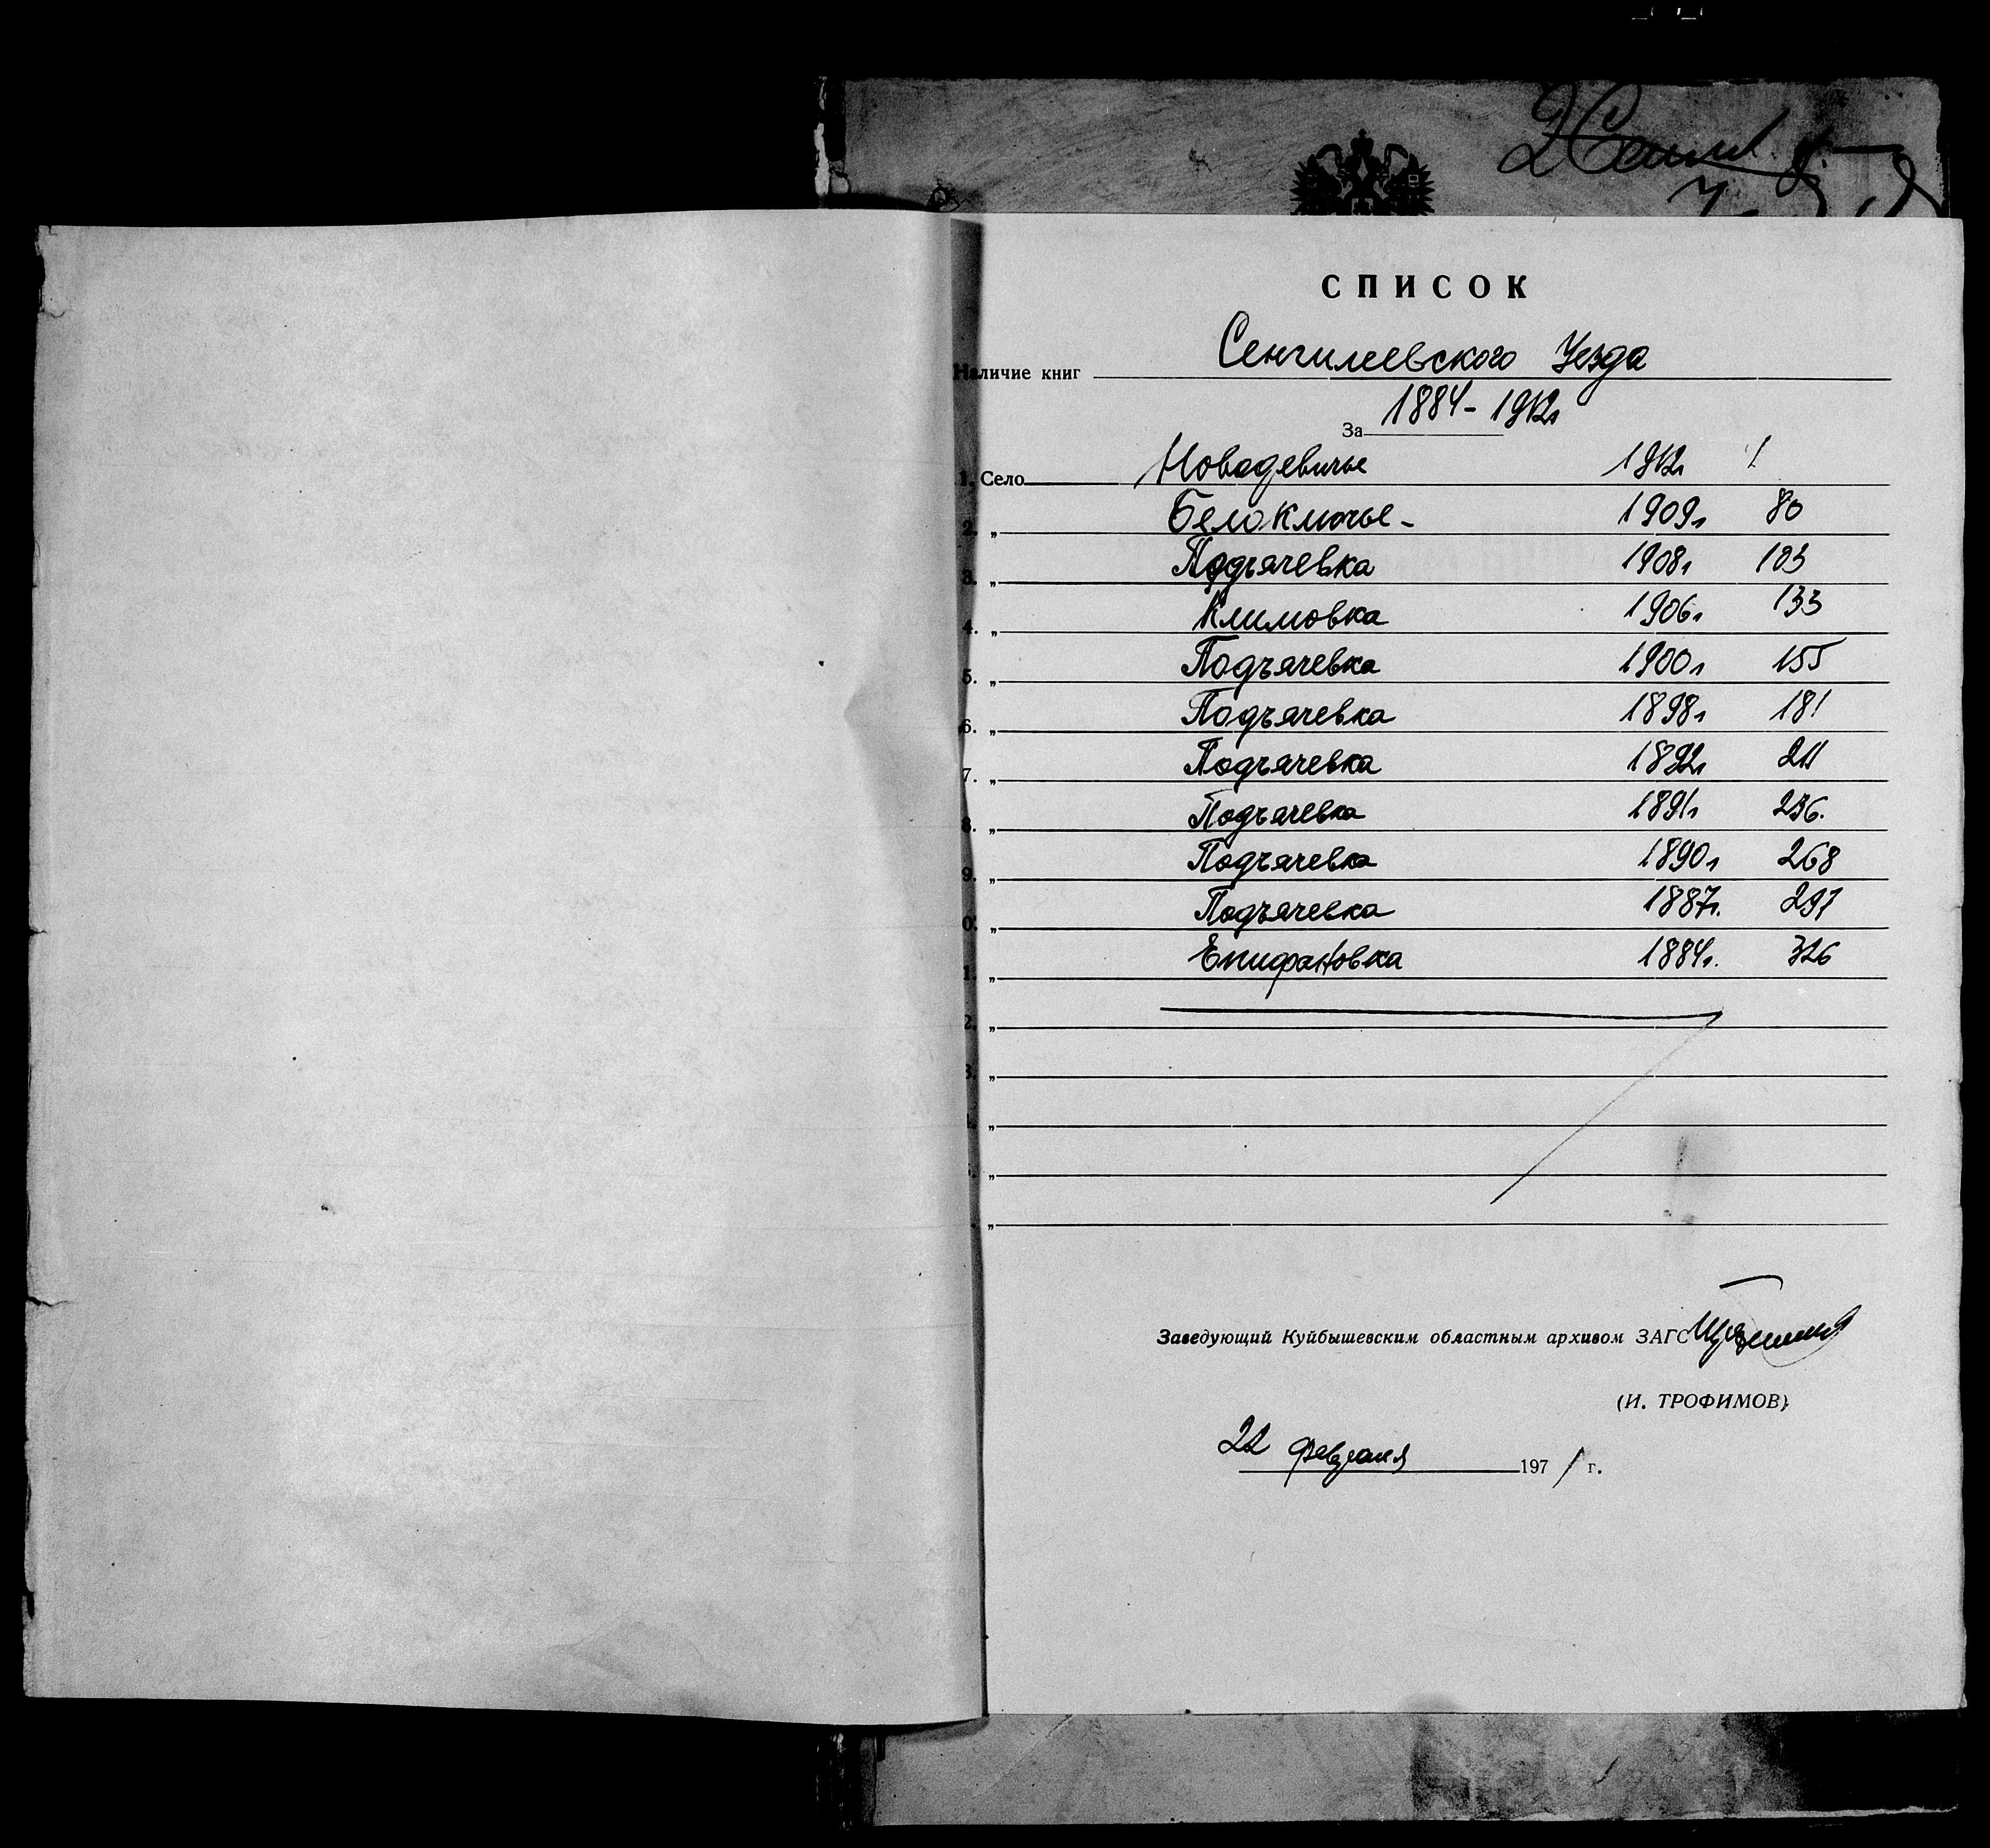 СПИСОК
Наличие книг Сенгилеевского Уезда
За 1884-1912г
1. Село Новодевичье 1912г 1
2. „ Белоключье- 1909г 80
3. „ Подъячевка 1908г 103
4. „ Климовка 1906г 133
5. „ Подъячевка 1900г 155
6. „ Подъячевка 1898г 181
7. „ Подъячевка 1892г 211
8. „ Подъячевка 1891г 236.
9. „ Подъячевка 1890г 268
0. „ Подъячевка 1887г. 297
1. „ Епифановка 1884г. 326
2. „
3. „
„
„
„
Заведующий Куйбышевским областным архивом ЗАГС
(И. ТРОФИМОВ)
22 февраля 1971 г.